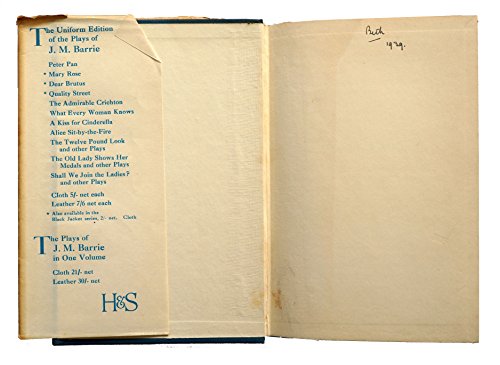 The Uniform Edition
of the Plays of
J. M. Barrie
Peter Pan
• Mary Rose
• Dear Brutus
• Quality Street
The Admirable Crichton
What Every Woman Knows
A Kiss for Cinderella
Alice Sit-by-the-Fire
The Twelve Pound Look
and other Plays
The Old Lady Shows Her
Medals and other Plays
Shall We Join the Ladies?
and other Plays
Cloth 5/- net each
Leather 7/6 net each
• Also available in the
Black Jacket series, 2/- net. Cloth
The Plays of
J. M. Barrie
in One Volume
Cloth 21/- net
Leather 30/- net
H&S
Beth
1939.